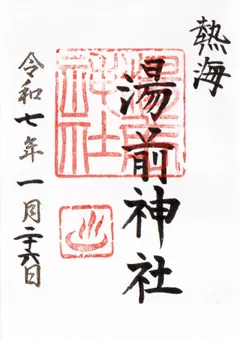 熱海
湯前神社
令和七年一月二十六日
湯前神社